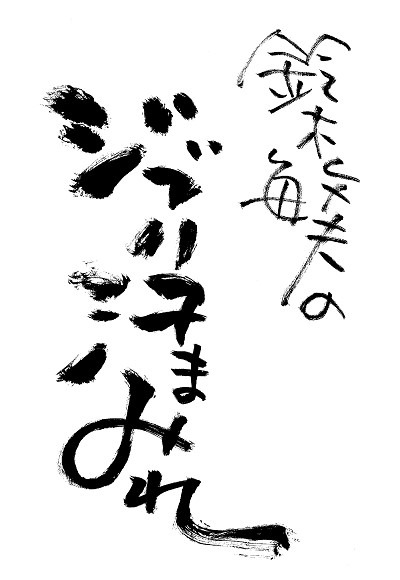 鈴木敏夫の
ジブリ汗まみれ